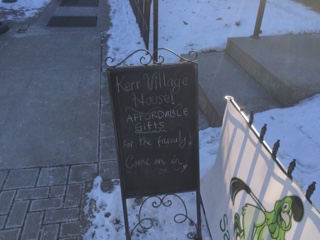 Kerr Village
House!
AFFORDABLE
GIFTS
For the family!
Come on in